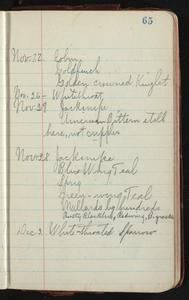 65
Nov. 22. Robin
Goldfinch
Golden crowned Kinglet
Nov. 26 - Whitethroat
Nov 27 Jacksnipe
American Bittern still
here, not cripple
Nov 28. Jacksnipe
Blue Wing Teal
Sprig
Green-wing Teal
Mallards by hundreds
Rusty Blackbird, Redwing,
Dec 2 White-throated Sparrow